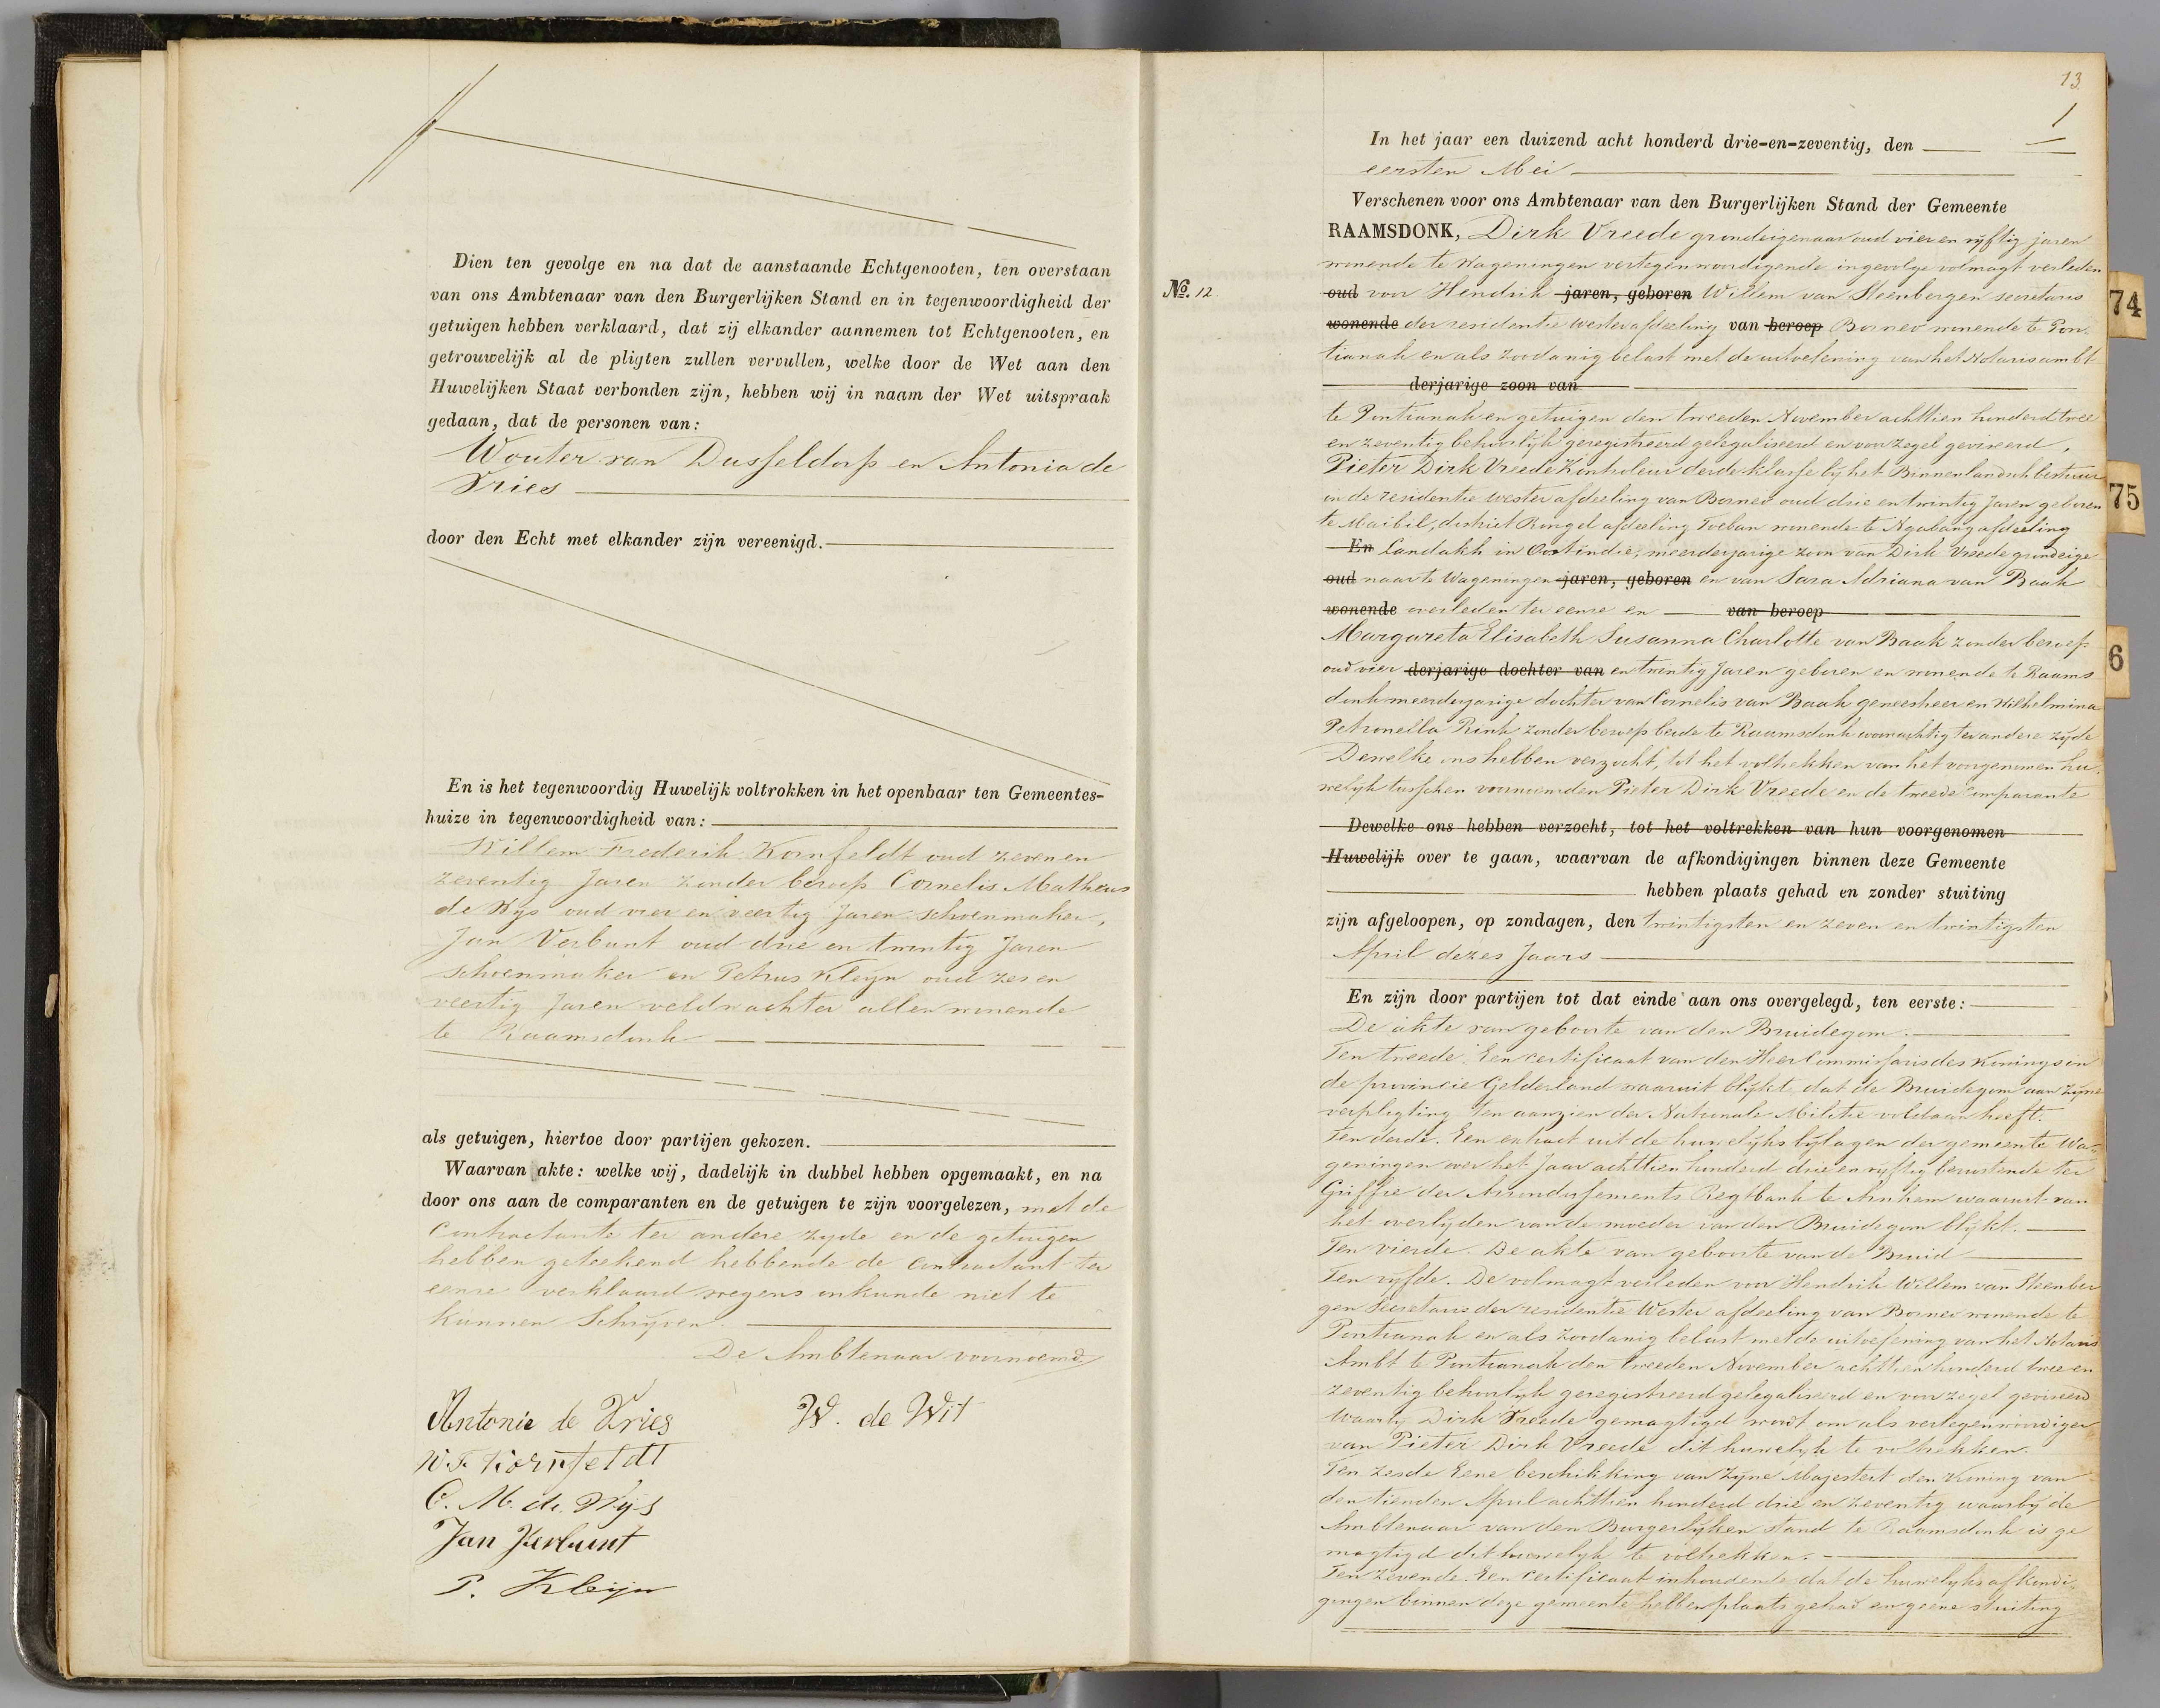 Dien ten gevolge en na dat de aanstaande Echtgenooten, ten overstaan
van ons Ambtenaar van den Burgerlijken Stand en in tegenwoordigheid der
getuigen hebben verklaard, dat zij elkander aannemen tot Echtgenooten, en
getrouwelijk al de pligten zullen vervullen, welke door de Wet aan den
Huwelijken Staat verbonden zijn, hebben wij in naam der Wet uitspraak
gedaan, dat de personen van:
Wouter van Dusseldorp en Antonia de
Vries
door den Echt met elkander zijn vereenigd.
En is het tegenwoordig Huwelijk voltrokken in het openbaar ten Gemeentes-
huize in tegenwoordigheid van:
Willem Frederik Kornfeldt oud zeven en
zeventig Jaren zonder beroep Cornelis Matheus
de Wijs oud vier en veertig Jaren schoenmaker,
Jan Verbunt oud drie en twintig Jaren
schoenmaker en Petrus Kleijn oud zes en
veertig Jaren veldwachter allen wonende
te Raamsdonk
als getuigen, hiertoe door partijen gekozen.
Waarvan akte: welke wij, dadelijk in dubbel hebben opgemaakt, en na
door ons aan de comparanten en de getuigen te zijn voorgelezen, met de
Contractante ter andere zyde en de getuigen
hebben geteekend hebbende de Contractant ter
eenre verklaard wegens onkunde niet te
kunnen Schrijven.
De Ambtenaar voornoemd
Antonie de Vries W. de Wit
W. F. Kornfeldt
C. M. de Wijs
Jan Verbunt
P. Kleijn
13
1
In het jaar een duizend acht honderd drie-en-zeventig, den
eersten Mei
Verschenen voor ons Ambtenaar van den Burgerlijken Stand der Gemeente
RAAMSDONK, Dirk Vreede grondeigenaar oud vier en vyftig jaren
No. 12
wonende te Wageningen vertegenwoordigende ingevolge volmagt verleden
oud voor Hendrik jaren, geboren Willem van Steenbergen secretaris
wonende der residentie westerafdeeling van beroep Borneo wonende te Pon-
tianak en als zoodanig belast met de uitoefening van het Notarisambt
derjarige zoon van
te Pontianak en getuigen den tweeden November achttien honderd twee
en zeventig behoorlijk geregistreerd gelegaliseerd en voor zegel geviseerd,
Pieter Dirk Vreede Kontroleur derde klasse bij het Binnenlandsch bestuur
in de residentie wester afdeeling van Borneo oud drie en twintig Jaren geboren
te Maibil, district Rengel afdeeling Toeban wonende te Ngabang afdeeling
En Landakh in Oostindie, meerderjarige zoon van Dirk Vreede grondeige
oud naar te Wageningen jaren, geboren en van Sara Adriana van Baak
wonende overleden ter eenre en van beroep
Margareta Elisabeth Susanna Charlotte van Baak zonder beroep
oud vier derjarige dochter van en twintig Jaren geboren en wonende te Raams
donk meerderjarige dochter van Cornelis van Baak geneesheer en Wilhelmina
Petronella Rink zonder beroep beide te Raamsdonk woonachtig ter andere zyde
Dewelke ons hebben verzocht, tot het voltrekken van het voorgenomen hu-
welijk tusschen voornoemden Pieter Dirk Vreede en de tweede Comparante
Dewelke ons hebben verzocht, tot het voltrekken van hun voorgenomen
Huwelijk over te gaan, waarvan de afkondigingen binnen deze Gemeente
hebben plaats gehad en zonder stuiting
zijn afgeloopen, op zondagen, den twintigsten en zeven en twintigsten
April dezes Jaars
En zijn door partijen tot dat einde aan ons overgelegd, ten eerste:
De akte van geboorte van den Bruidegom.
Ten tweede. Een certificaat van den Heer Commissaris des Konings in
de provincie Gelderland waaruit blijkt, dat de Bruidegom aan zyne
verpligting ten aanzien der Nationale Militie voldaan heeft.
Ten derde. Een extract uit de huwelijks bijlagen der gemeente Wa-
geningen over het Jaar achttien honderd drie en vyftig berustende ter
Griffie der Arrondissements Regtbank te Arnhem waaruit van
het overlyden van de moeder van den Bruidegom blijkt.
Ten vierde. De akte van geboorte van de Bruid
Ten vyfde. De volmagt verleden voor Hendrik Willem van Steenber
gen Secretaris der residentie Wester afdeeling van Borneo wonende te
Pontianak en als zoodanig belast met de uitoefening van het Notaris
Ambt te Pontianak den tweeden November achttien honderd twee en
zeventig behoorlijk geregistreerd gelegaliseerd en voor zegel geviseerd
waarbij Dirk Vreede gemagtigd word om als vertegenwoordiger
van Pieter Dirk Vreede dit huwelijk te voltrekken.
Ten zesde Eene beschikking van Zijne Majesteit den Koning van
den tienden April achttien honderd drie en zeventig waarbij de
Ambtenaar van den Burgerlijken stand te Raamsdonk is ge
magtigd dit huwelijk te voltrekken.
Ten zevende. Een certificaat inhoudende dat de huwelyks afkondi-
gingen binnen deze gemeente hebben plaats gehad en geene stuiting
74
75
6